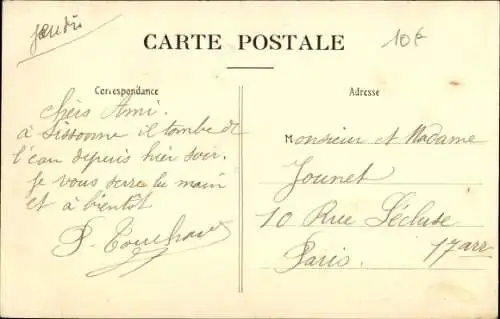 Jeudi
10€
CARTE POSTALE
Correspondance
Adresse
Chers Amis.
à Sissonne il tombe de
l'eau depuis hier soir.
Je vous serre la main
et à bientôt
P.
Monsieur et Madame
Jounet
10 Rue Lécluse
Paris. 17 arr